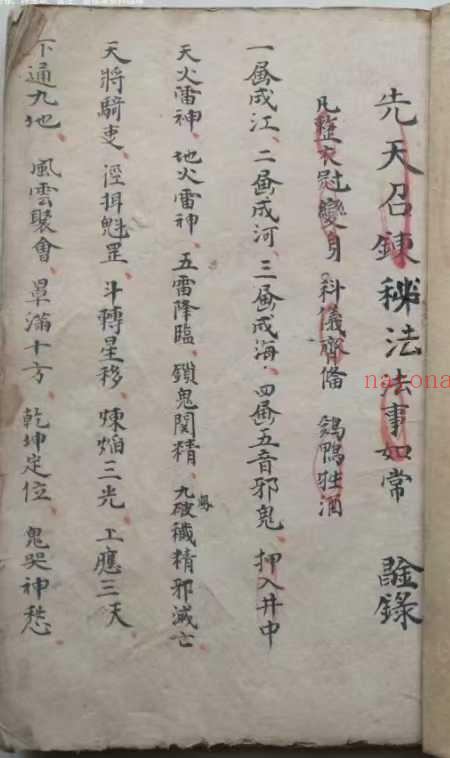 先天召鍊秘法法事如常 謚錄
凡整衣慰變身 科儀齊備 鷄鴨牲酒
一畵成江、二畵成河、三畵成海、四畵五音邪鬼、押入井中
天火雷神、地火雷神、五雷降臨、鎖鬼関精、九鳳破穢精邪滅亡
天將騎吏、涇揖魁罡、斗轉星移、煉焰三光、上應三天、
下通九地、風雲聚會、罩滿十方、乾坤定位、鬼哭神愁